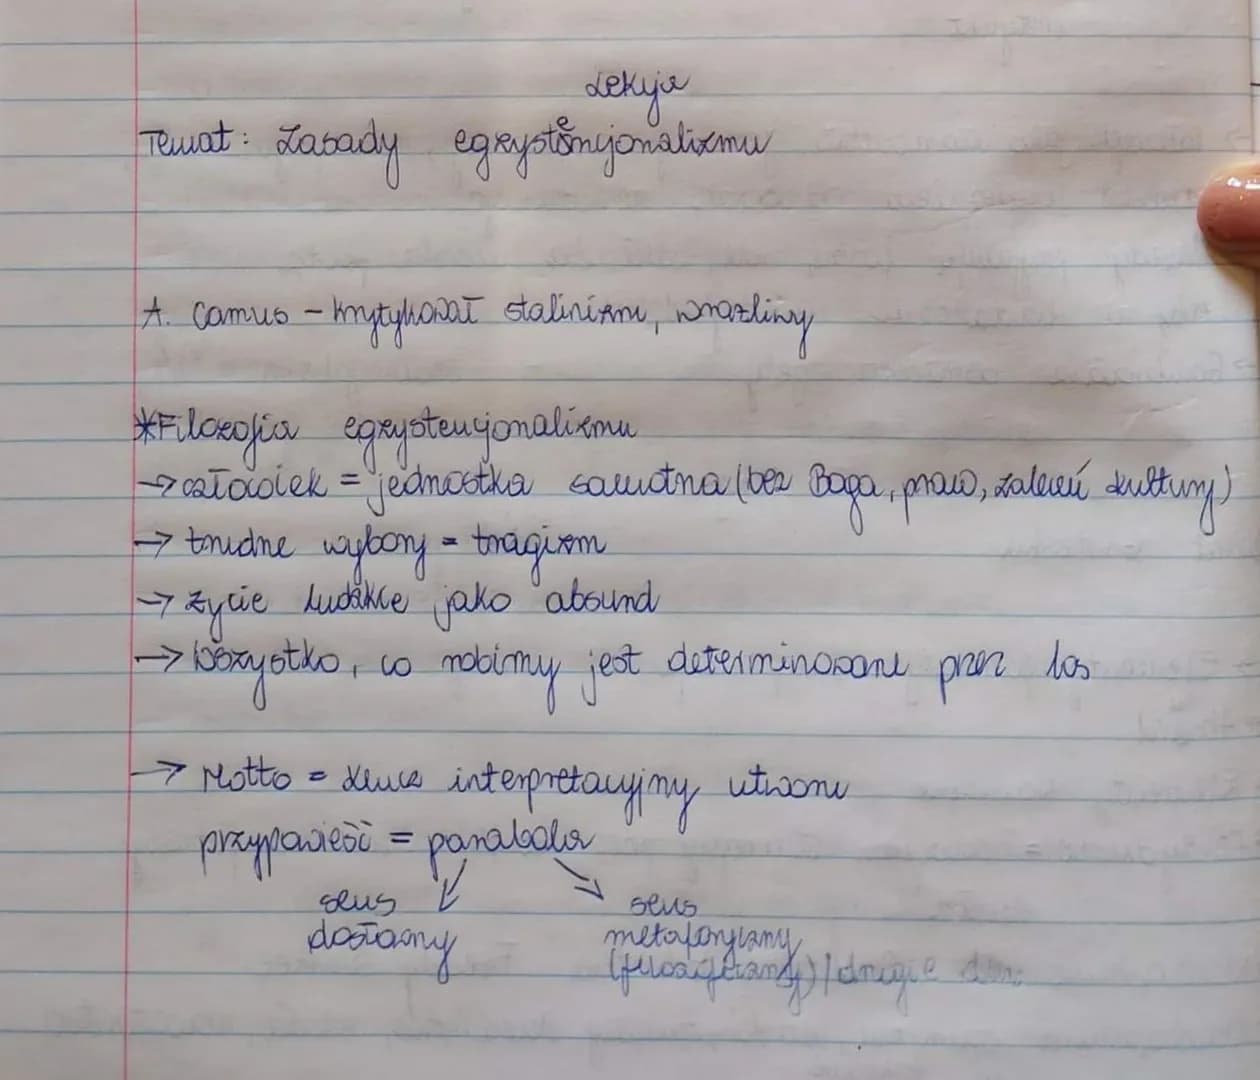 Lekcja
Temat: Zasady egzystencjonalizmu
A. Camus – krytykował stalinizm, wrażliwy
*Filozofia egzystencjonalizmu
→ człowiek = jednostka samotna (bez Boga, praw, zaleceń kultury)
→ trudne wybory = tragizm
→ życie ludzkie jako absurd
→ Wszystko, co robimy jest determinowane przez los
→ Motto = klucz interpretacyjny utworu
przypowieść = parabola
sens sens
dosłowny metaforyczny
(filozoficzny) / drugie